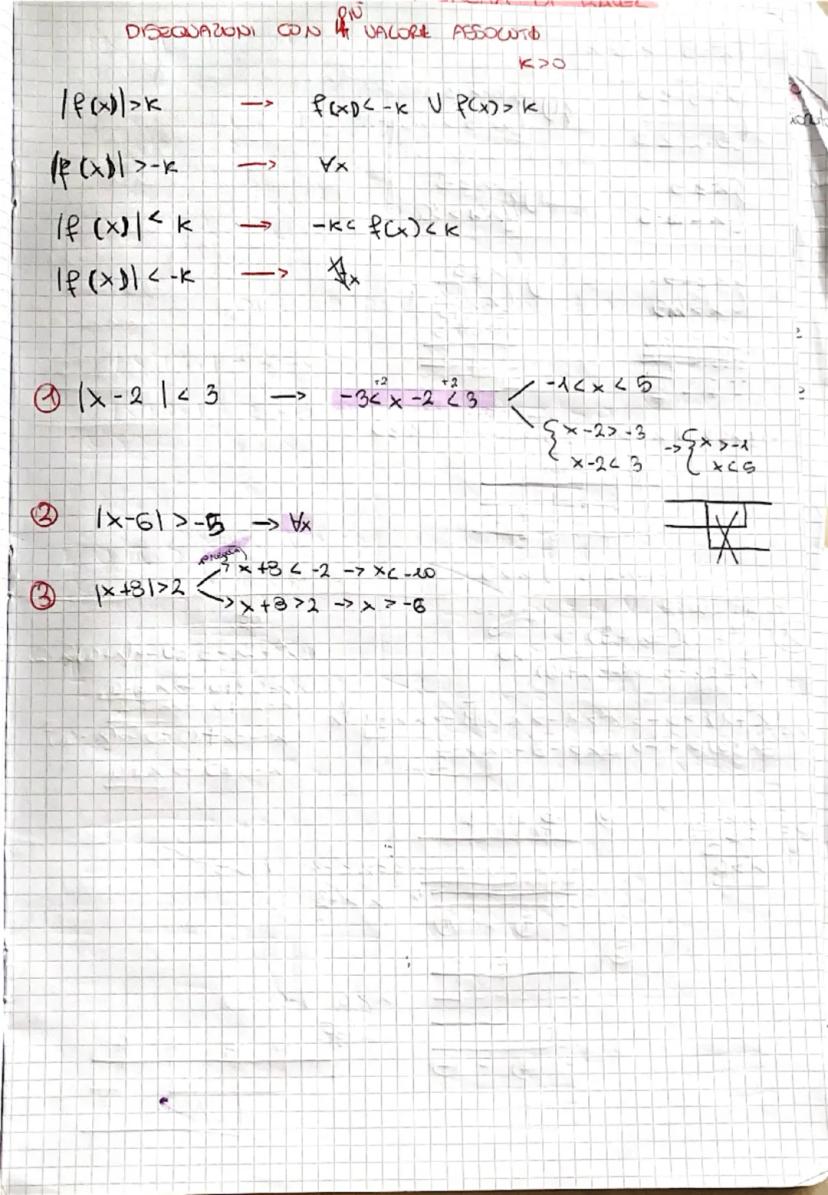 DISEQUAZIONI CON UN VALORE ASSOLUTO
K>0
|f(x)|>K → f(x)<-K ∪ f(x)>K
|f(x)|>-K → ∀x
|f(x)|<K → -K<f(x)<K
|f(x)|<-K → ∄x
① |x-2|<3 → -3<x-2<3 -1<x<5
+2 +2
{x-2>-3 → {x>-1
x-2<3 x<5
② |x-6|>-5 → ∀x
③ |x+8|>2 → x+8<-2 → x<-10
→ x+8>2 → x>-6